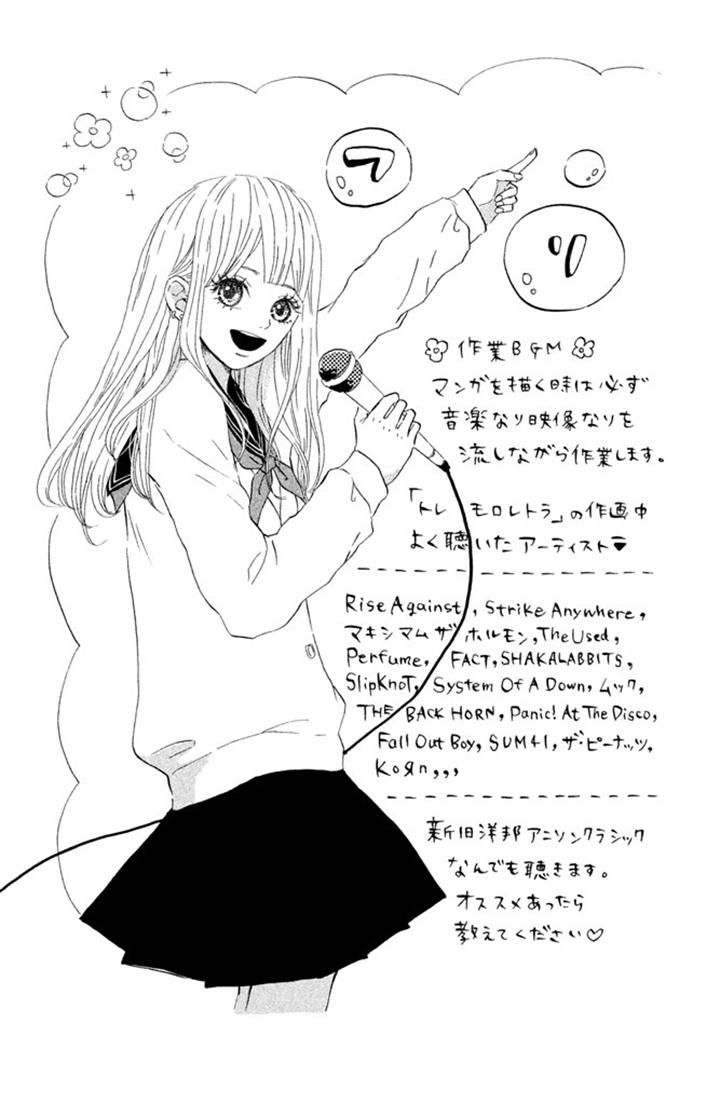 フ
リ
作業BGM
マンガを描く時は必ず
音楽なり映像なりを
流しながら作業します。
「トレ モロレトラ」の作画中
よく聴いたアーティスト
Rise Against, Strike Anywhere,
マキシマム ザ ホルモン, The Used,
Perfume, FACT, SHAKALABBITS,
SlipKnoT, System Of A Down, ムック,
THE BACK HORN, Panic! At The Disco,
Fall Out Boy, SUM41, ザ・ピーナッツ,
KoЯn,,,
新旧洋邦アニソンクラシック
なんでも聴きます。
オススメあったら
教えてください♡